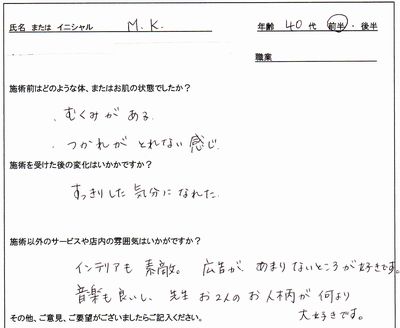 氏名 または イニシャル M.K. 年齢 40 代 前半・後半
職業
施術前はどのような体、またはお肌の状態でしたか？
、むくみが ある.
、つかれが とれない 感じ.
施術を受けた後の変化はいかかですか？
すっきりした 気分に なれた.
施術以外のサービスや店内の雰囲気はいかがですか？
インテリアも 素敵。 広告が、あまりないところが好きです。
音楽も良いし、先生 お2人の お人柄が 何より
大好きです。
その他、ご意見、ご要望がございましたらご記入ください。